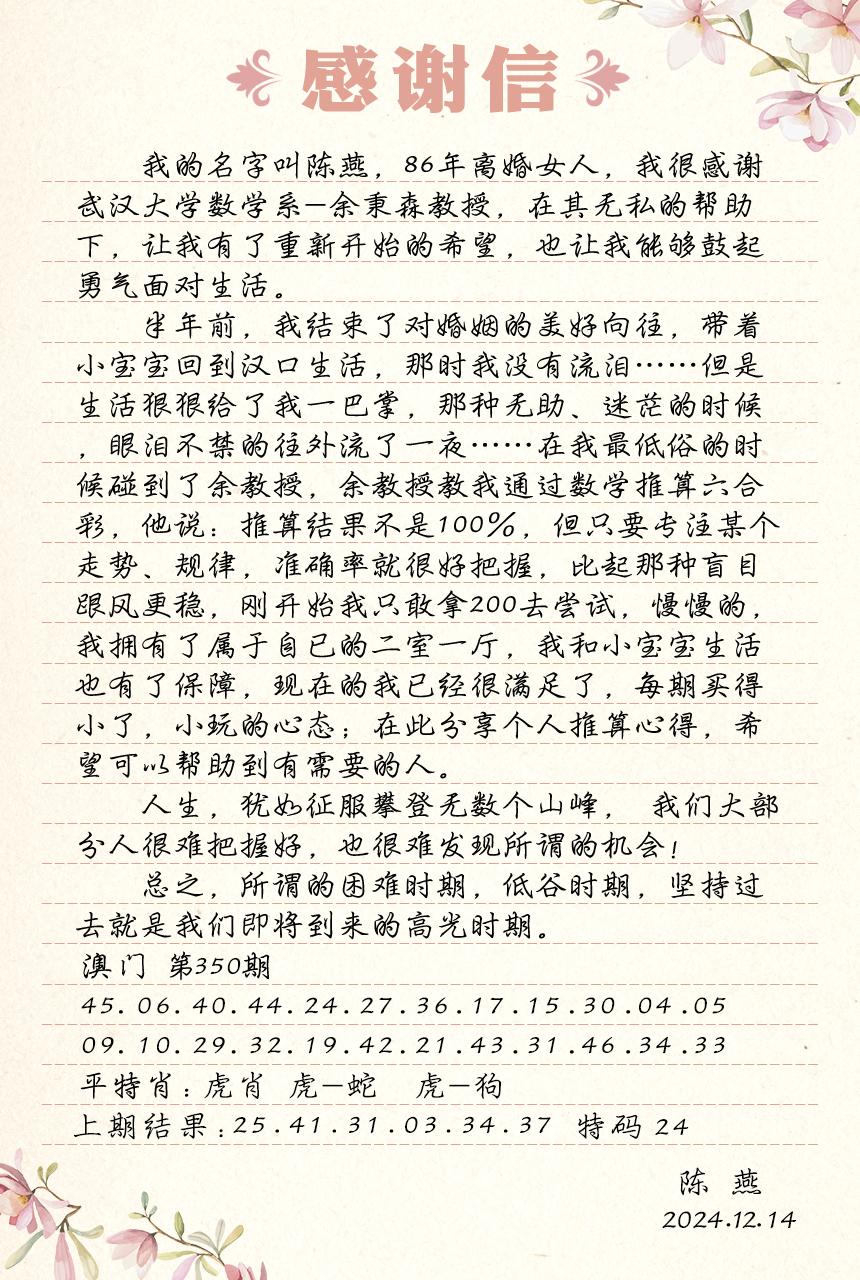 感谢信
我的名字叫陈燕，86年离婚女人，我很感谢
武汉大学数学系—余秉森教授，在其无私的帮助
下，让我有了重新开始的希望，也让我能够鼓起
勇气面对生活。
半年前，我结束了对婚姻的美好向往，带着
小宝宝回到汉口生活，那时我没有流泪……但是
生活狠狠给了我一巴掌，那种无助、迷茫的时候
，眼泪不禁的往外流了一夜……在我最低俗的时
候碰到了余教授，余教授教我通过数学推算六合
彩，他说：推算结果不是100%，但只要专注某个
走势、规律，准确率就很好把握，比起那种盲目
跟风更稳，刚开始我只敢拿200去尝试，慢慢的，
我拥有了属于自已的二室一厅，我和小宝宝生活
也有了保障，现在的我已经很满足了，每期买得
小了，小玩的心态；在此分享个人推算心得，希
望可以帮助到有需要的人。
人生，犹如征服攀登无数个山峰， 我们大部
分人很难把握好，也很难发现所谓的机会！
总之，所谓的困难时期，低谷时期，坚持过
去就是我们即将到来的高光时期。
澳门 第350期
45.06.40.44.24.27.36.17.15.30.04.05
09.10.29.32.19.42.21.43.31.46.34.33
平特肖：虎肖 虎—蛇 虎—狗
上期结果：25.41.31.03.34.37 特码 24
陈 燕
2024.12.14